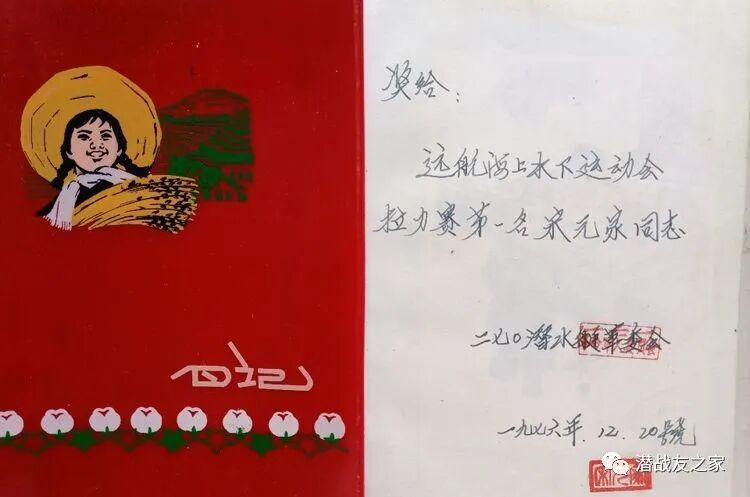 日记
奖给：
远航海上水下运动会
拉力赛第一名宋元宗同志
二七〇潜水艇革委会
一九七六年.12.20号
潜战友之家